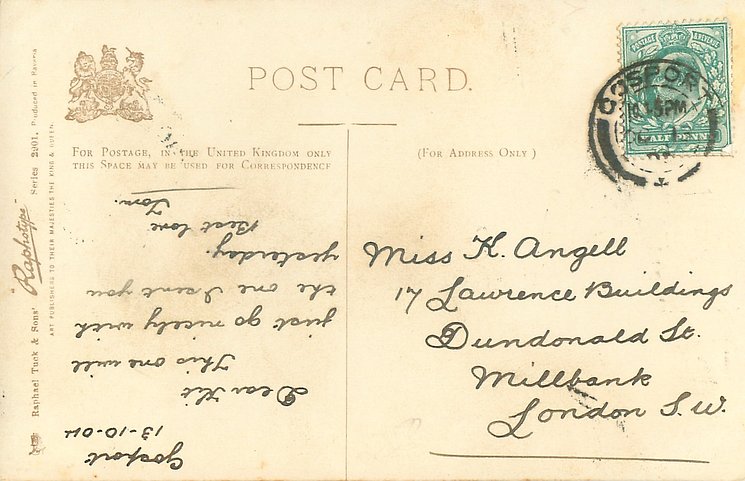 POST CARD.
FOR POSTAGE, IN THE UNITED KINGDOM ONLY
THIS SPACE MAY BE USED FOR CORRESPONDENCE
(FOR ADDRESS ONLY)
POSTAGE & REVENUE
HALF PENNY
GOSPORT
PM
Miss K. Angell
17 Lawrence Buildings
Dundonald St.
Millbank
London S.W.
Gosport
13-10-04
Dear Kit
This one will
just go nicely with
the one I sent you
yesterday.
Best love
Tom.
Raphael Tuck & Sons' "Raphotype" Series 2901. Produced in Bavaria
ART PUBLISHERS TO THEIR MAJESTIES THE KING & QUEEN.